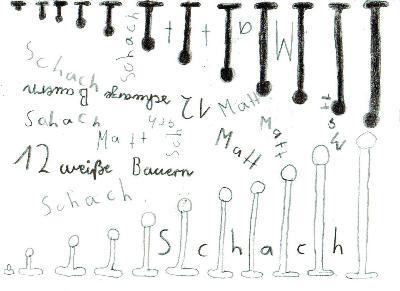 Matt
Schach
Schach
12 schwarze Bauern
Matt
Schach
Matt
Sch
Matt
Matt
12 weiße Bauern
Schach
Schach